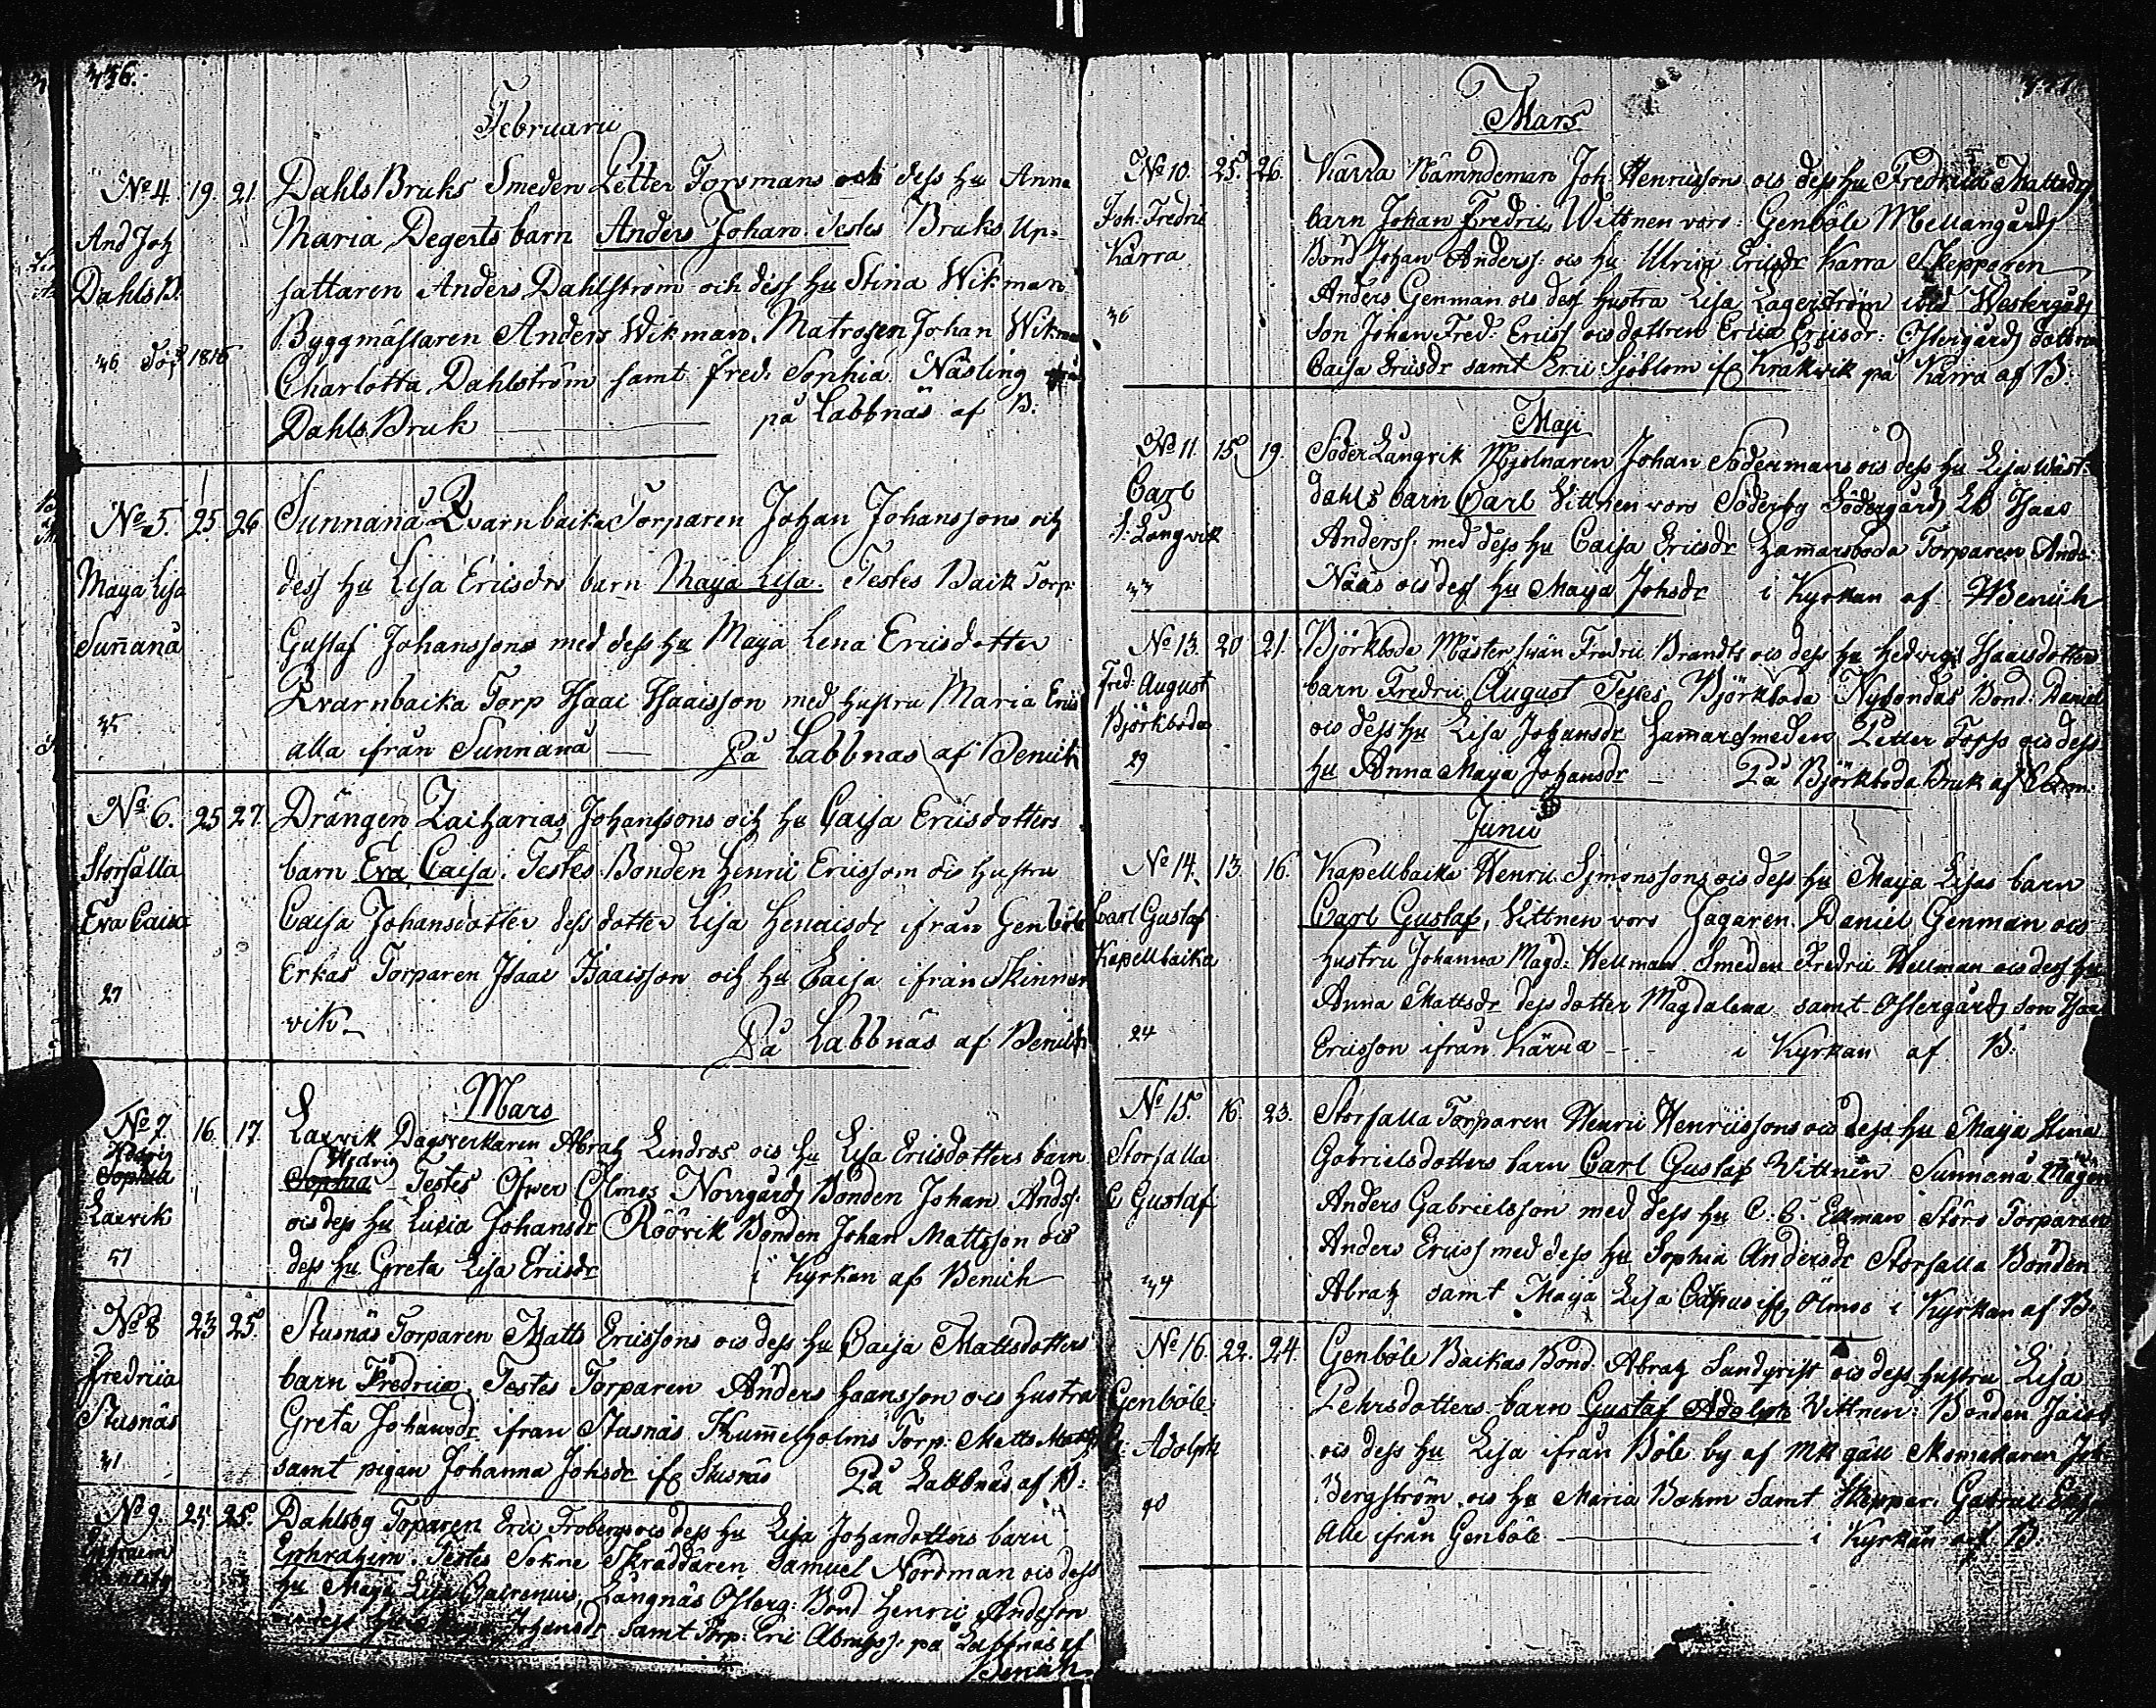 Februarii
No 4. 19. 21. DahlsBruks Smeden Petter Forsmans och dess hu Anna
And Joh Maria Degerts barn Anders Johan. Testes Bruks Up-
DahlsB. fattaren Anders Dahlström och dess hu Stina Wikman
Byggmästaren Anders Wikman, Matrosen Johan Wikman
36 1816 Charlotta Dahlström samt Fred: Sophia Näsling
DahlsBruk på Labbnäs af B:
No 5. 25 26 Sunnanå Qvarnbacka Torparen Johan Johanssons och
Maja Lisa dess hu Lisa Ericsdrs barn Maja Lisa. Testes Back Torp:
Sunnanå Gustaf Johanssons med dess hu Maja Lena Ericsdotter
Qvarnbacka Torp Isaac Isaacsson med hustru Maria Erics
35 alla ifrån Sunnanå På Labbnäs af Benich
No 6. 25 27. Drängen Zacharias Johanssons och hu Caisa Ericsdotters
Storfalla barn Eva Caisa. Testes Bonden Henric Ericsson och hustru
Eva Caisa Caisa Johansdotter dess dotter Lisa Henricsdr ifrån Genböle
Erkas Torparen Isaac Isaacsson och hu Caisa ifrån Skinnar
27 vik. På Labbnäs af Benich
Mars
No 7. 16. 17. Laxvik Dagsverkaren Abrah Lindros och hu Lisa Ericsdotters barn
Hedvig
Sophia
Hedvig
Sophia Testes Öfver Ölmos Norrgårds Bonden Johan Anders:
Laxvik och dess hu Lusia Johansdr Röövik Bonden Johan Mattsson och
37 dess hu Greta Lisa Ericsdr i Kyrkan af Benich
No 8 23 25. Stusnäs Torparen Matts Ericssons och dess hu Caisa Mattsdotters
Fredrica barn Fredrica. Testes Torparen Anders Haansson och hustru
Stusnäs Greta Johansdr ifrån Stusnäs. Kummelholms Torp: Matts
31 samt pigan Johanna Johsdr ifr Stusnäs På Labbnäs af B:
No 9 24 25. Dahlsby Toparen Eric Frobergs och dess hu Lisa Johansdotters barn
Ephrahim. Testes Sokne Skräddaren Samuel Nordman och dess
hu Maja Lisa Långnäs Osterg: Bond Henric Andersson
och dess hu Johansdr samt Torp: Eric Abrahss: på Labbnäs af
Benich
Mars
No 10. 25. 26. Kärra Nämndeman Joh Henricssons och dess hu Fredrica Mattsdrs
Joh: Fredric barn Johan Fredric, Wittnen voro: Genböle Mellangårds
Kärra Bond Johan Anderss: och hu Ulrica Ericsdr Kärra Skepparen
Anders Genman och dess hustru Lisa Lagerström ibid Westergårds
36 Son Johan Fred: Ericss och dottren Erica Ericsdr: Ostergårds dottren
Caisa Ericsdr samt Eric Sjöblom ifr Kråkvik på Kärra af B:
Maji
No 11. 15. 19. Söder Långvik Mjölnaren Johan Södermans och dess hu Lisa Wäst-
Carl dahls barn Carl Vittnen voro Söderby Södergårds Isaac
S: Långvik Anderss: med dess hu Caisa Ericsdr Hamarsboda Torparen Ands:
33 Nääs och dess hu Maja Johsdr i Kyrkan af Benich
No 13. 20 21. Björkboda Mästersvän Fredric Brandts och dess hu Hedvigs Isaacsdotters
Fred: August barn Fredric August Testes: Björkboda Nybondas Bond: Daniel
Björkboda och dess hu Lisa Johansdr Hamarsmeden Petter Forss och dess
29 hu Anna Maja Johansdr På Björkboda Bruk af
Junii
No 14. 13. 16. Kapellbacka Henric Simonssons och dess hu Maja Lisas barn
Carl Gustaf Carl Gustaf, Vittnen voro Jagaren Daniel Genman och
Kapellbacka hustru Johanna Magd: Hellman Smeden Fredric Hellman och dess hu
Anna Mattsdr dess dotter Magdalena samt Ostergårds son Isac
24 Ericsson ifrån Kärra i Kyrkan af B:
No 15. 16. 23. Storfalla Torparen Henric Henricssons och dess hu Maja Stina
Storfalla Gabrielsdotters barn Carl Gustaf Vittnen Sunnanå
C Gustaf Anders Gabrielsson med dess hu C: C: Ekman Störs Torparen
Anders Ericss med dess hu Sophia Andersdr Storfalla Bonden
34 Abrah samt Maja Lisa ifr Ölmos i Kyrkan af B:
No 16. 22. 24. Genböle Backas Bond: Abrah Sandqvist och dess hustru Lisa
Genböle Pehrsdotters barn Gustaf Adolph Vittnen: Bonden
G: Adolph och dess hu Lisa ifrån Böle by af Skomakaren Joh:
40 Bergström och hu Maria Bœhm samt Skeppar: Gabriel
Alle ifrån Genböle i Kyrkan af B: